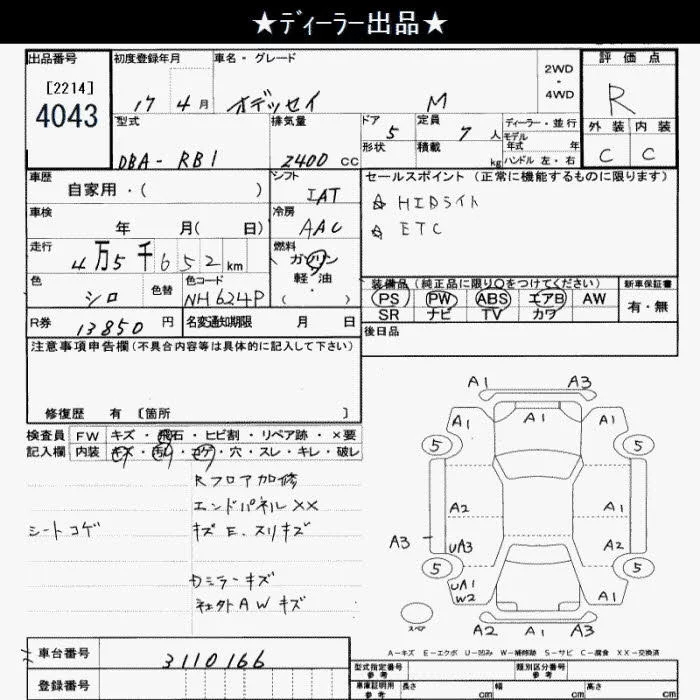 ★ディーラー出品★
出品番号
[2214]
4043
初度登録年月
17 4月
車名・グレード
オデッセイ M
2WD
・
4WD
評価点
R
外装 内装
C C
型式
DBA-RB1
排気量
2400 cc
ドア 5
形状
定員 7 人
積載 kg
ディーラー・並行
モデル年式 年
ハンドル 左・右
車歴
自家用・( )
シフト
IAT
セールスポイント(正常に機能するものに限ります)
☆ HIDライト
☆ ETC
車検
年 月( 日)
冷房
AAC
走行
4万5千652km
燃料
ガソリン
軽・油
( )
色
シロ
色替
色コード
NH624P
装備品(純正品に限り○をつけてください)
PS PW ABS エアB AW
SR ナビ TV カワ
新車保証書
有・無
R券 13850 円
名変通知期限 月 日
後日品
注意事項申告欄(不具合内容等は具体的に記入して下さい)
修復歴 有 〔箇所 〕
検査員 FW キズ・飛石・ヒビ割・リペア跡・×要
記入欄 内装 キズ・汚れ・コゲ・穴・スレ・キレ・破レ
Rフロア加修
エンドパネル××
シートコゲ キズE.スリキズ
カミラーキズ
社外AWキズ
A1 A3
A1 A1 A1
5 5
A2 A1
A3 UA3 A2
5 5
UA1
W2 A1
A2 A1 A3
スペア
A-キズ E-エクボ U-凹み W-補修跡 S-サビ C-腐食 XX-交換済
車台番号 3110166
登録番号
型式指定番号
参考
類別区分番号
参考
車庫証明用
参考
長さ cm 幅 cm 高さ cm